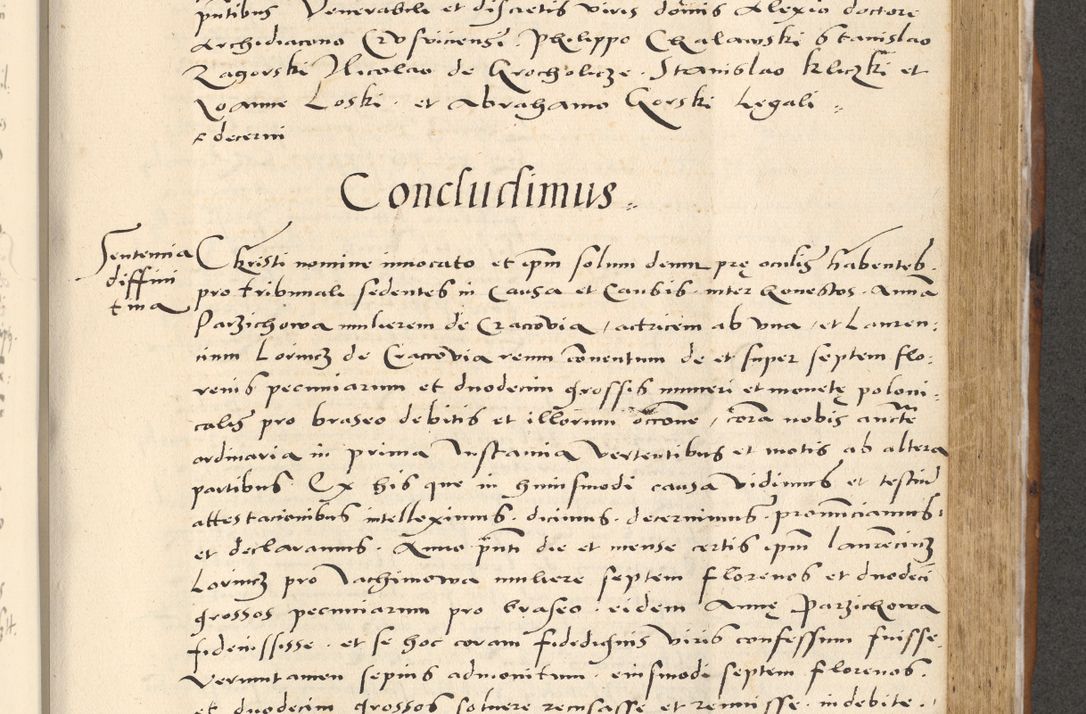 pñtibus Venerabili et discretis viris dominis Alexio doctore
Archidiacono Philippo Chalawski Stanislao
Zagorski Nicolao de Krocholicze Stanislao kliczki et
Ioanne Loski et Abrahamo Gorski Legali
r decerni
Concludimus
Sententia
diffini
tiva
Christi nomine invocato et ipm solum deum pre oculis habentes
pro tribunali sedentes in Causa et Causis inter honestos Annã
Parzichowa mulierem de Cracovia actricem ab una et Lauren:
cium Lorincz de Cracovia reum conventum de et super septem flo:
renis pecuniarum et duodecim grossis numeri et monetę poloni:
calis pro braseo debitis et illorum occõne corã nobis aucte
ordinaria in prima Instancia vertentibus et motis ab altera
partibus Ex his que in huiusmodi causa vidimus et testiũ
attestacionibus intelleximus dicimus decernimus pronũciamus
et declaramus Anno pñti die et mense certis ipm laurenciũ
Lorincz pro Iachimowa muliere septem florenos et duodecĩ
grossos pecuniarum pro braseo eidem Annę Parzichowa
fideiussisse et se hoc coram fidedignis viris confessum fuisse
Veruntamen sepius admonitum eiusmodi septem florenos
et duodecim grossos solvere recusasse et rennuisse indebite